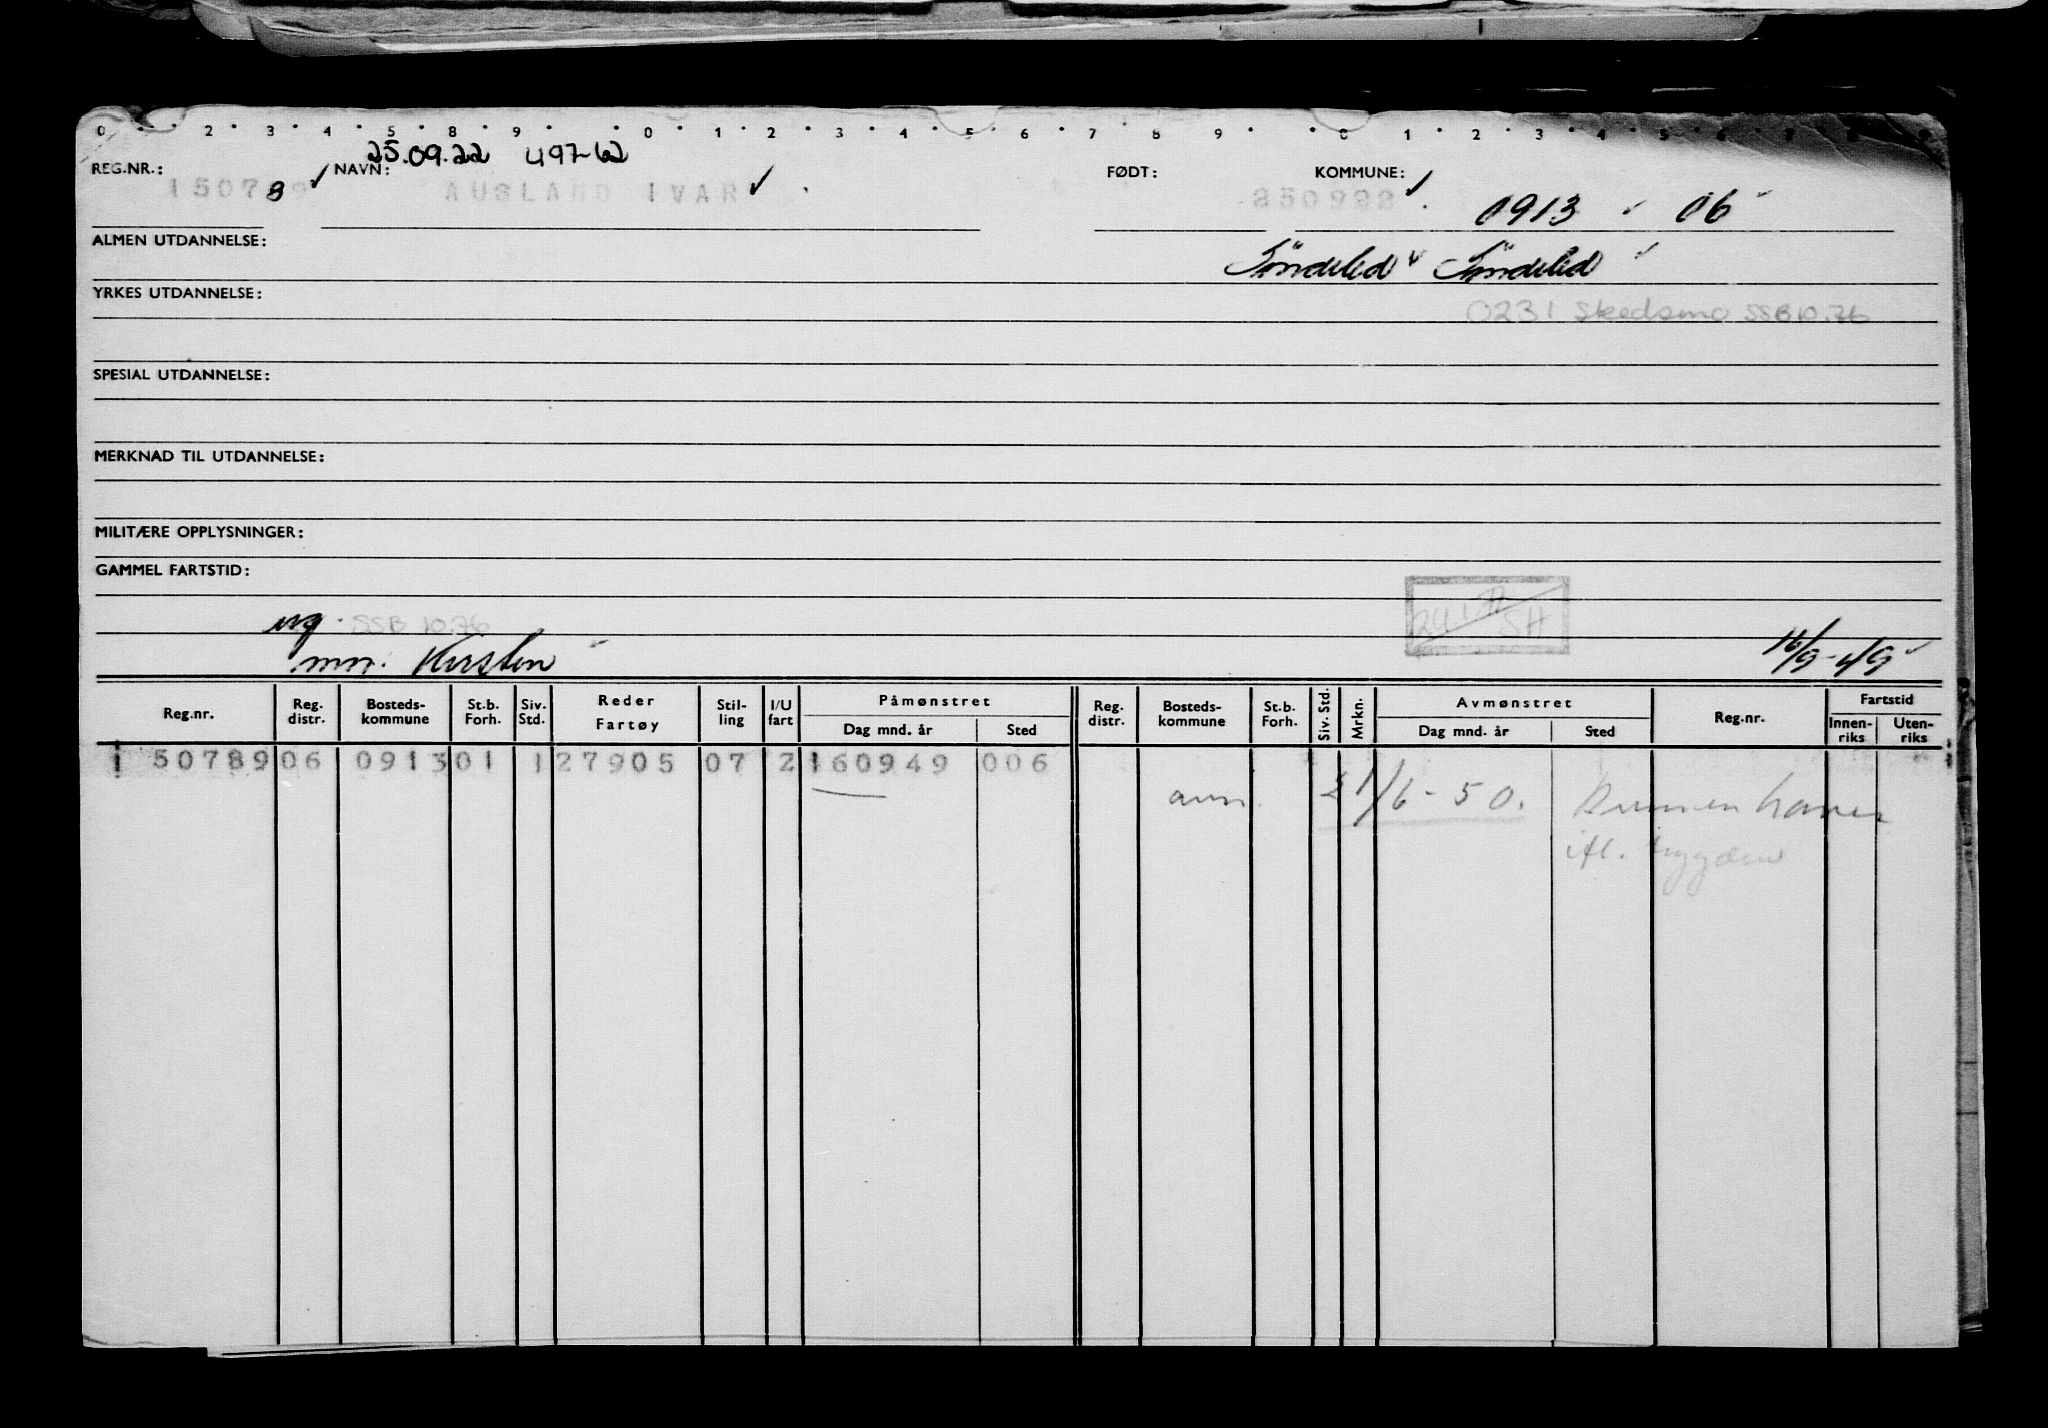 0 2 3 4 5 8 9 0 1 2 3 4 5 6 7 8 9 0 1 2 3 4 5 6 7 8 9
25.09.22 497-62
REG.NR.: NAVN: FØDT: KOMMUNE:
150789 8 AUSLAND IVAR 250922 0913 06
ALMEN UTDANNELSE: Söndeled Söndeled
YRKES UTDANNELSE: 0231 Skedsmo SSB 10.76
SPESIAL UTDANNELSE:
MERKNAD TIL UTDANNELSE:
MILITÆRE OPPLYSNINGER:
GAMMEL FARTSTID:
ug. SSB 10.76 SH
mn. Kirsten 16/9-49
Reg.nr. Reg. distr. Bosteds-kommune St.b. Forh. Siv. Std. Reder Fartøy Stil-ling I/U fart Påmønstret Dag mnd. år Sted Reg. distr. Bosteds-kommune St.b. Forh. Siv. Std. Mrkn. Avmønstret Dag mnd. år Sted Reg.nr. Fartstid Innen-riks Uten-riks
150789 06 0913 01 1 27905 07 2 160949 006
avm. 21/6-50.
ifl. trygden